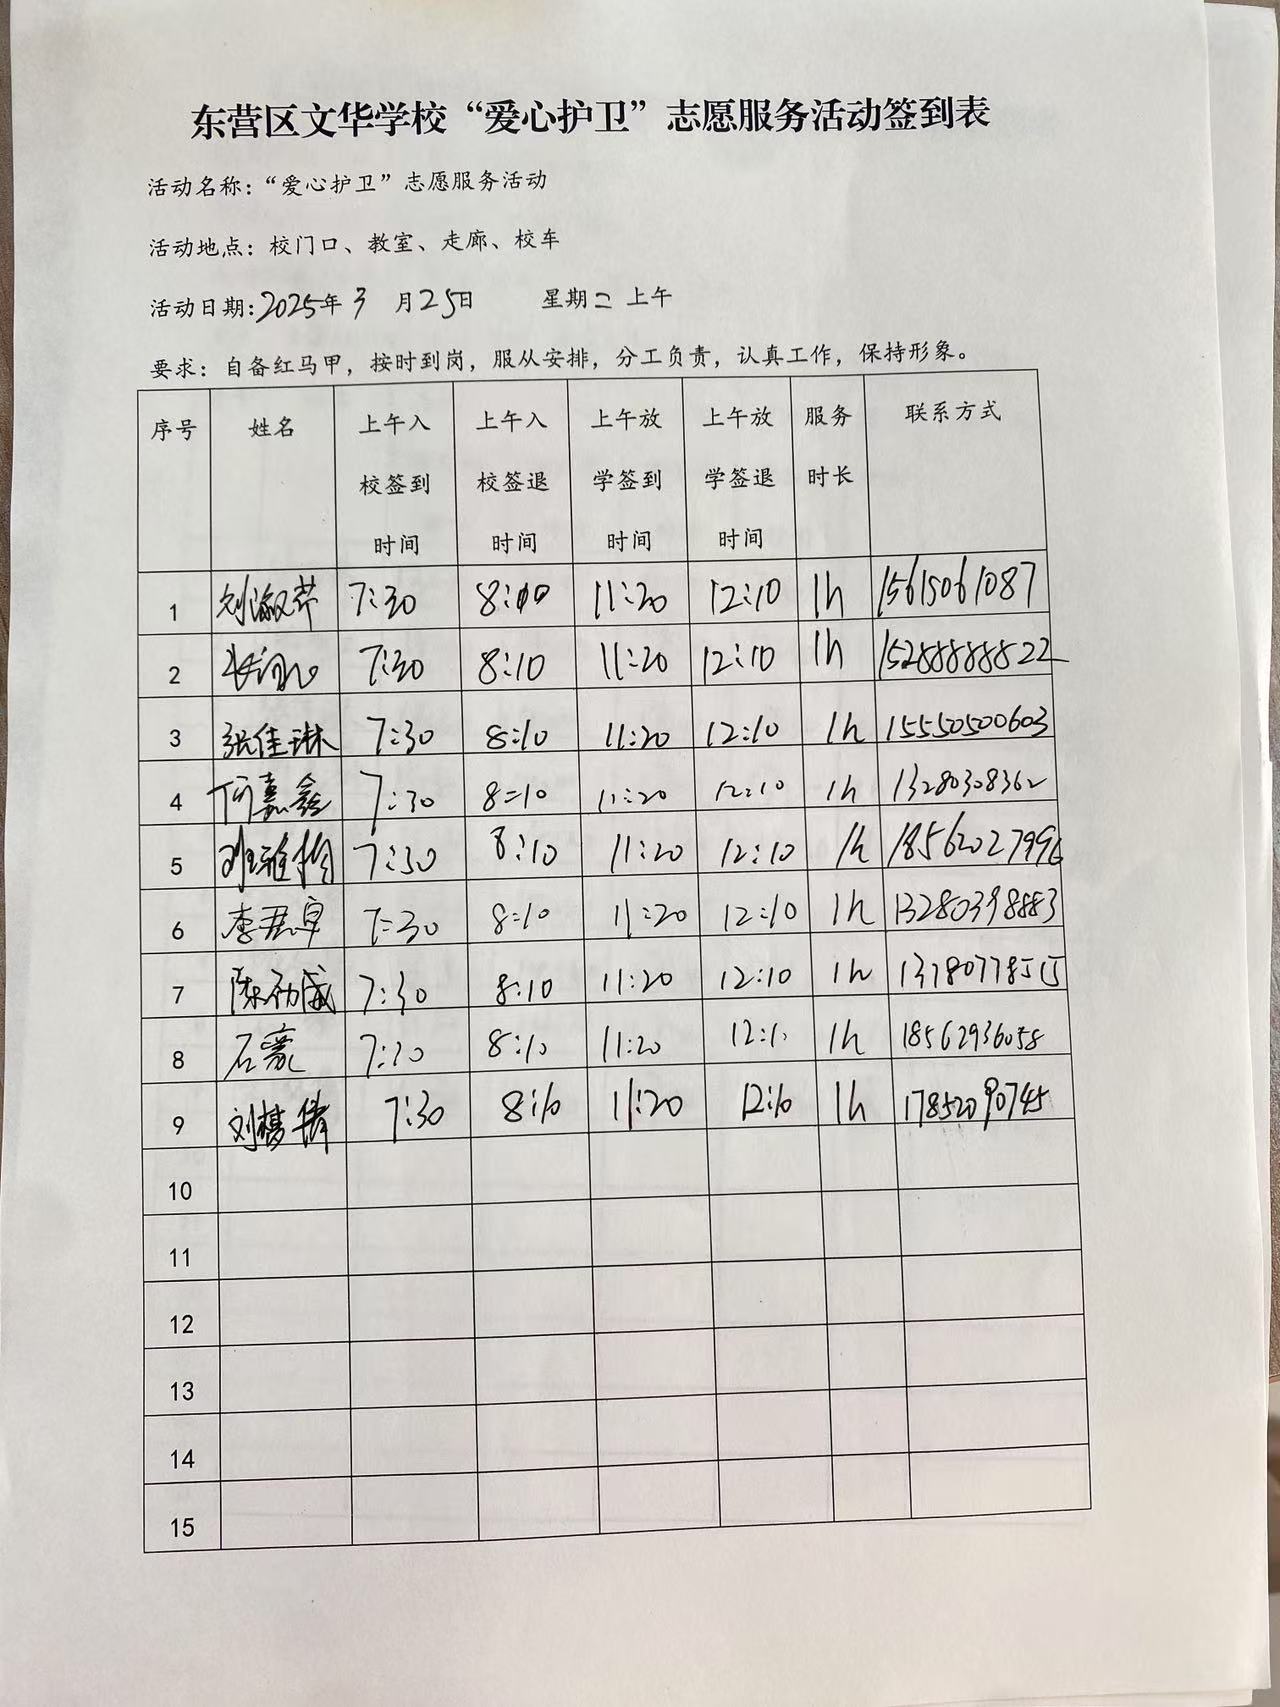 东营区文华学校“爱心护卫”志愿服务活动签到表
活动名称：“爱心护卫”志愿服务活动
活动地点：校门口、教室、走廊、校车
活动日期：2025年3月25日 星期二 上午
要求：自备红马甲，按时到岗，服从安排，分工负责，认真工作，保持形象。
序号 姓名 上午入校签到时间 上午入校签退时间 上午放学签到时间 上午放学签退时间 服务时长 联系方式
1 刘淑芹 7:30 8:00 11:20 12:10 1h 15615061087
2 7:30 8:10 11:20 12:10 1h 15288888822
3 张佳琳 7:30 8:10 11:20 12:10 1h 15550500603
4 何嘉鑫 7:30 8:10 11:20 12:10 1h 13280308362
5 7:30 8:10 11:20 12:10 1h 18562027996
6 李君卓 7:30 8:10 11:20 12:10 1h 13280398883
7 7:30 8:10 11:20 12:10 1h 13780778515
8 石豪 7:30 8:10 11:20 12:10 1h 18562936058
9 刘梦倩 7:30 8:10 11:20 12:10 1h 17852090745
10
11
12
13
14
15